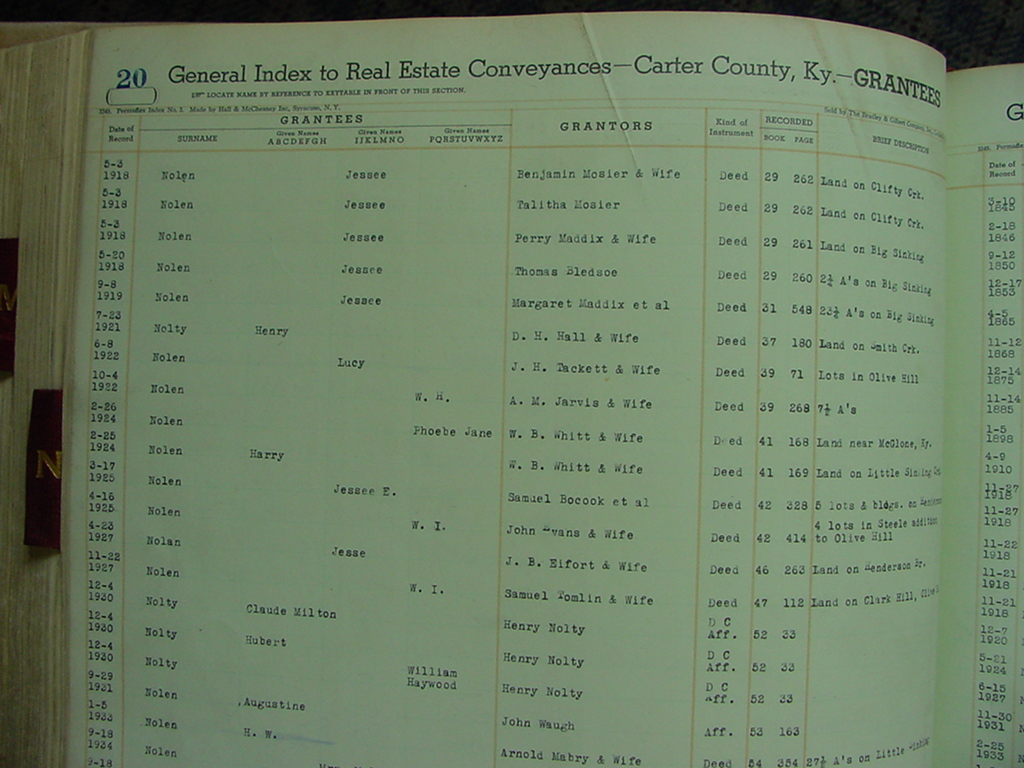 20 General Index to Real Estate Conveyances—Carter County, Ky.—GRANTEES
LOCATE NAME BY REFERENCE TO KEYTABLE IN FRONT OF THIS SECTION.
Made by Hall & McChesney Inc, Syracuse, N. Y. Sold by The Bradley & Gilbert Company,
Date of Record GRANTEES GRANTORS Kind of Instrument RECORDED BRIEF DESCRIPTION
SURNAME Given Names ABCDEFGH Given Names IJKLMNO Given Names PQRSTUVWXYZ BOOK PAGE
5-3 1918 Nolen Jessee Benjamin Mosier & Wife Deed 29 262 Land on Clifty Crk.
5-3 1918 Nolen Jessee Talitha Mosier Deed 29 262 Land on Clifty Crk.
5-3 1918 Nolen Jessee Perry Maddix & Wife Deed 29 261 Land on Big Sinking
5-20 1918 Nolen Jessee Thomas Bledsoe Deed 29 260 2½ A's on Big Sinking
9-8 1919 Nolen Jessee Margaret Maddix et al Deed 31 548 23½ A's on Big Sinking
7-23 1921 Nolty Henry D. H. Hall & Wife Deed 37 180 Land on Smith Crk.
6-8 1922 Nolen Lucy J. H. Tackett & Wife Deed 39 71 Lots in Olive Hill
10-4 1922 Nolen W. H. A. M. Jarvis & Wife Deed 39 268 7½ A's
2-26 1924 Nolen Phoebe Jane W. B. Whitt & Wife Deed 41 168 Land near McGlone, Ky.
2-25 1924 Nolen Harry W. B. Whitt & Wife Deed 41 169 Land on Little Sinking
3-17 1925 Nolen Jessee E. Samuel Bocook et al Deed 42 328 5 lots & bldgs. on
4-16 1925 Nolen W. I. John Evans & Wife Deed 42 414 4 lots in Steele addition to Olive Hill
4-23 1927 Nolan Jesse J. B. Elfort & Wife Deed 46 263 Land on Henderson Br.
11-22 1927 Nolen W. I. Samuel Tomlin & Wife Deed 47 112 Land on Clark Hill,
12-4 1930 Nolty Claude Milton Henry Nolty D C Aff. 52 33
12-4 1930 Nolty Hubert Henry Nolty D C Aff. 52 33
12-4 1930 Nolty William Haywood Henry Nolty D C Aff. 52 33
9-29 1931 Nolen Augustine John Waugh Aff. 53 163
1-5 1933 Nolen H. W. Arnold Mabry & Wife Deed 54 354 27½ A's on Little
9-18 1934 Nolen
9-18
M
N
G
Date of Record
3-10 1845
2-18 1846
9-12 1850
12-17 1853
4-5 1865
11-12 1868
12-14 1875
11-14 1885
1-5 1898
4-9 1910
11-27 1918
11-27 1918
11-22 1918
11-21 1918
11-21 1918
12-7 1920
5-21 1924
6-15 1927
11-30 1931
2-25 1933